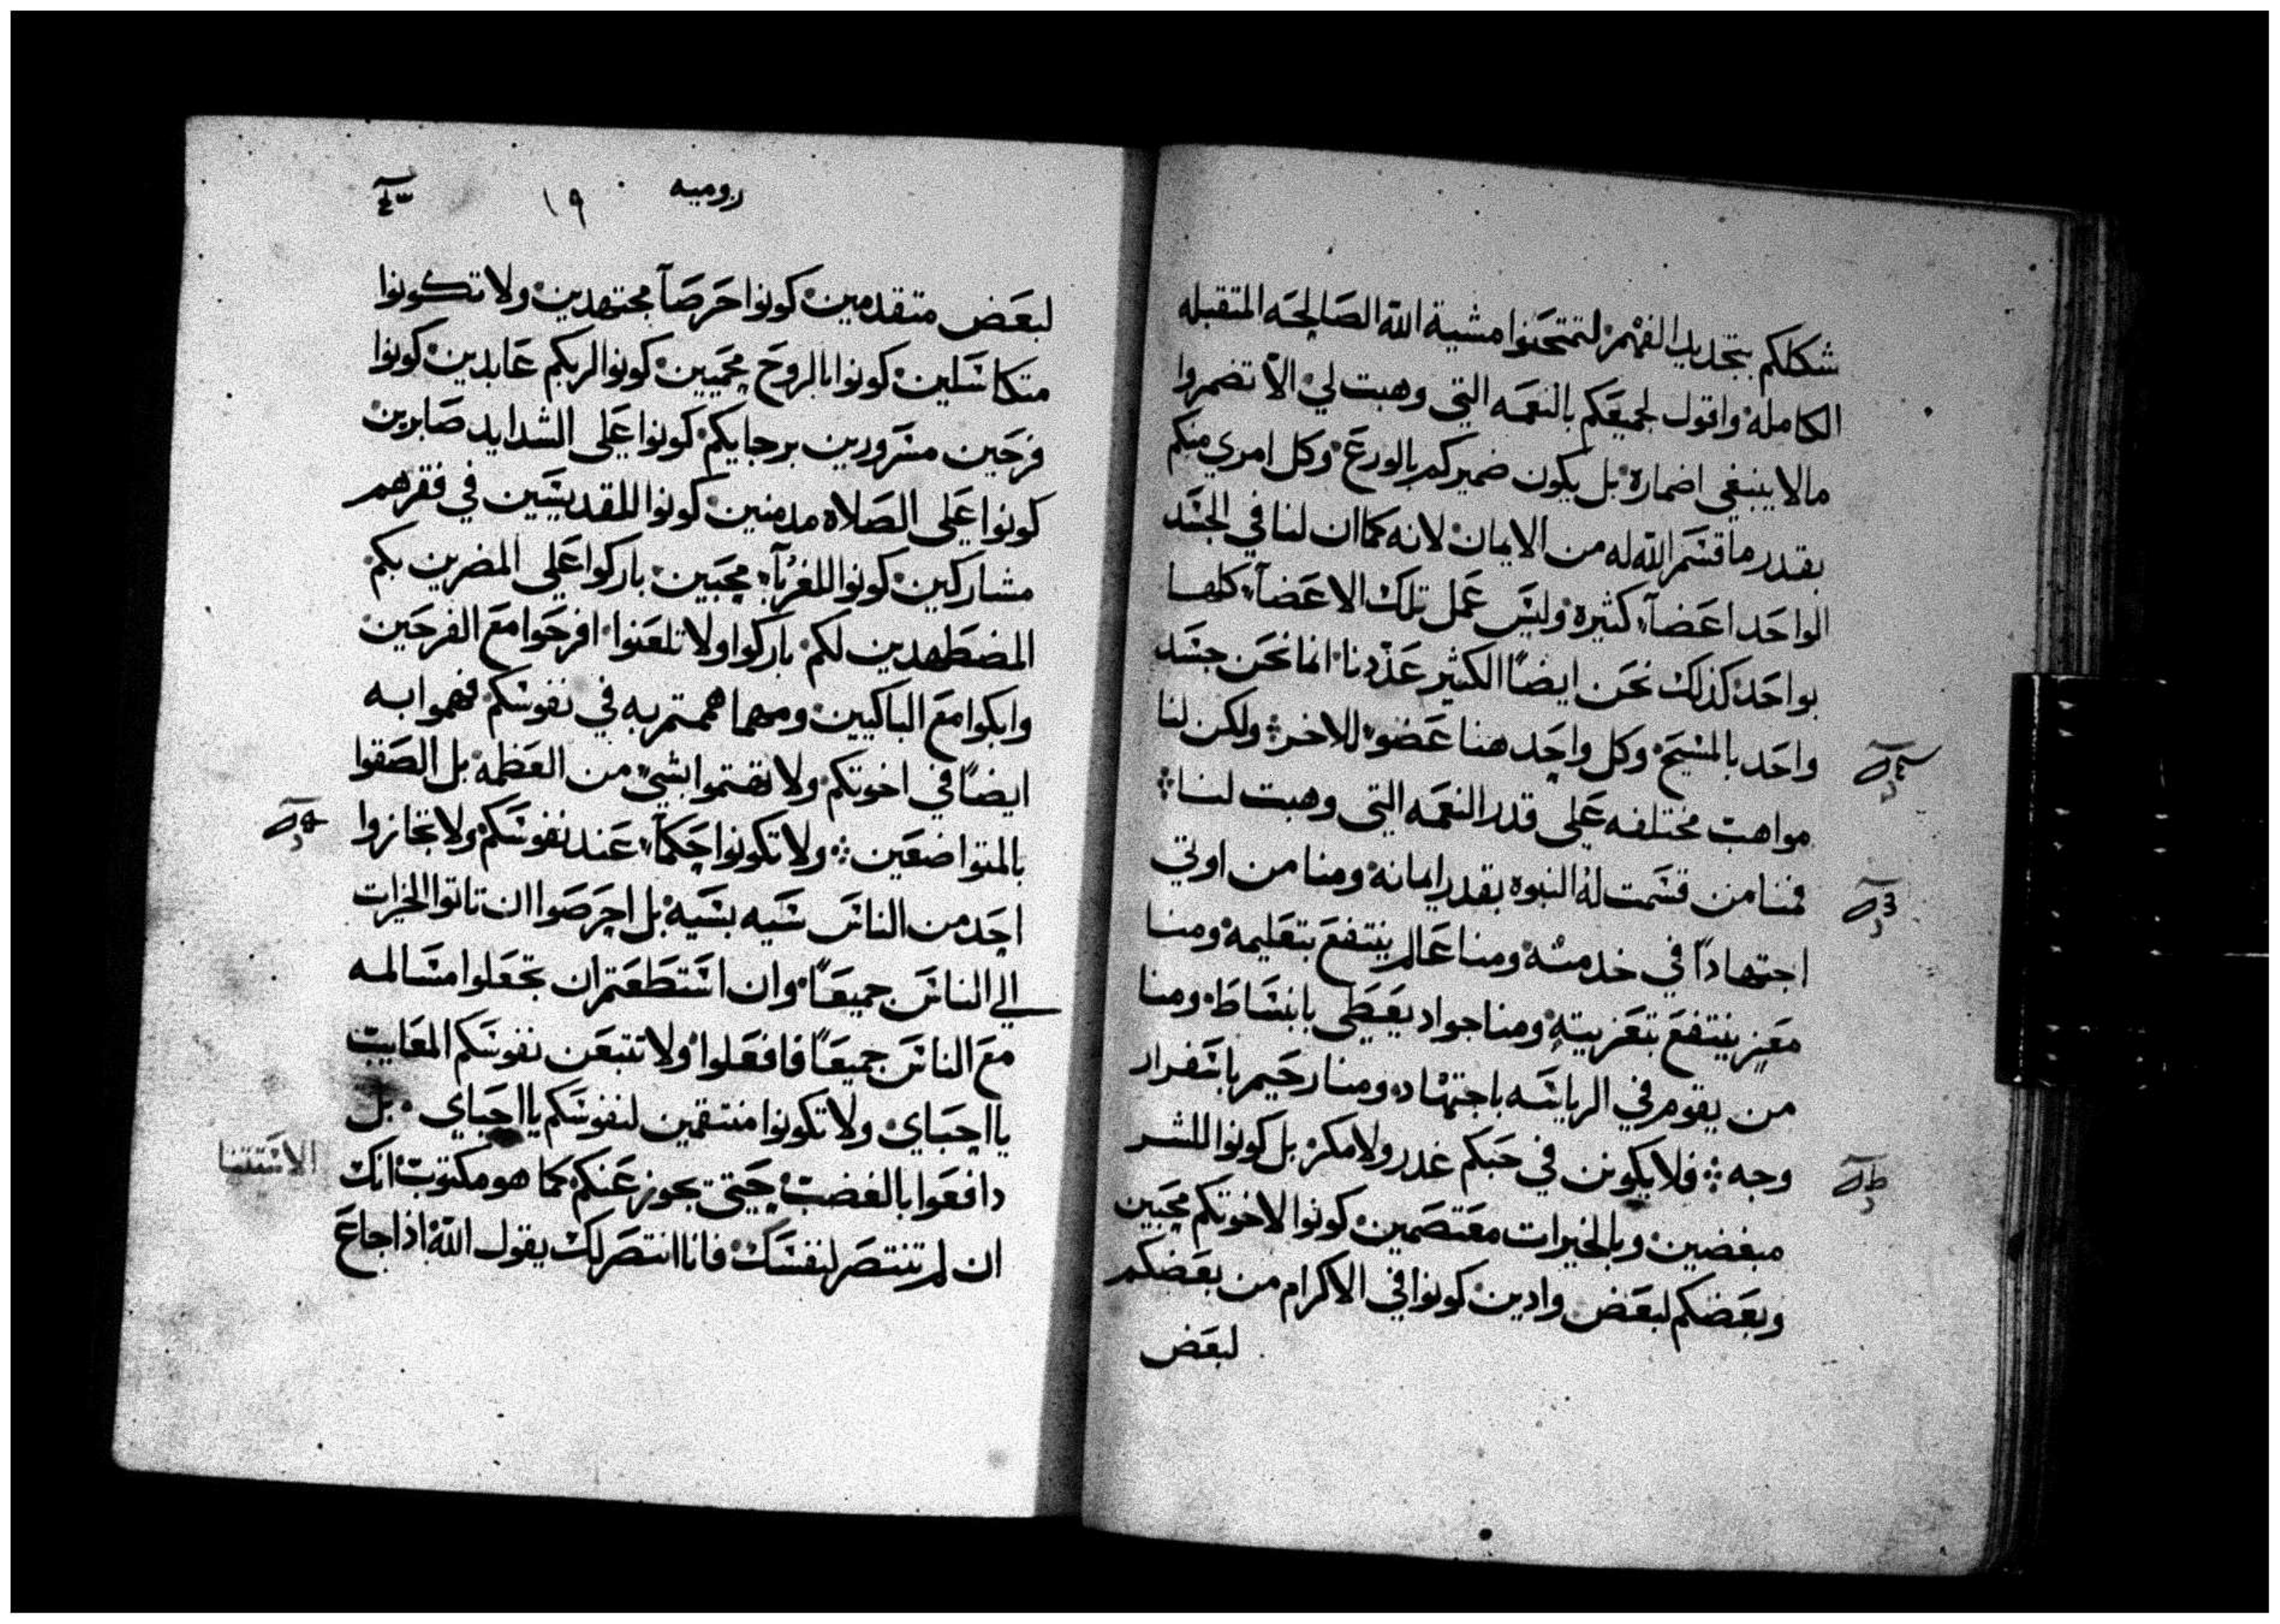 شكلكم بتجديد الفهم لتمتحنوا مشية الله الصالحه المتقبله
الكامله واقول لجميعكم بالنعمه التي وهبت لي الا تضمروا
مالا ينبغي اضماره بل يكون ضميركم بالورع وكل امري منكم
بقدر ما قسم الله له من الايمان لانه كما ان لنا في الجسد
الواحد اعضآء كثيره وليس عمل تلك الاعضآء كلها
بواحد كذلك نحن ايضاً الكثير عددنا انما نحن جسد
واحد بالمسيح وكل واحد منا عضو للاخر ولكن لنا
مواهب مختلفه على قدر النعمه التي وهبت لنا
فمنا من قسمت له النبوه بقدر ايمانه ومنا من اوتي
اجتهاداً في خدمته ومنا عالم ينتفع بتعليمه ومنا
معز ينتفع بتعزيته ومنا جواد يعطي بانبساط ومنا
من يقوم في الرياسه باجتهاد ومنا رحيم باسفرار
وجه فلا يكونن في حبكم غدر ولا مكر بل كونوا للشر
مبغضين وبالخيرات معتصمين كونوا لاخوتكم محبين
وبعضكم لبعض وادين كونوا في الاكرام من بعضكم
لبعض
روميه ١٩
لبعض متقدمين كونوا حرصآ مجتهدين ولا تكونوا
متكاسلين كونوا بالروح محميين كونوا لربكم عابدين كونوا
فرحين مسرورين برجايكم كونوا على الشدايد صابرين
كونوا على الصلاه مدمنين كونوا للمقديسين في فقرهم
مشاركين كونوا للغربآء محبين باركوا على المضرين بكم
المضطهدين لكم باركوا ولا تلعنوا افرحوا مع الفرحين
وابكوا مع الباكيين ومهما هممتم به في نفوسكم فهموا به
ايضاً في اخوتكم ولا تهتموا بشي من العظمه بل الصقوا
بالمتواضعين ولا تكونوا حكمآء عند نفوسكم ولا تجازوا
احد من الناس سيه بسيه بل احرصوا ان تاتوا الخيرات
الي الناس جميعاً وان استطعتم ان تجعلوا مسالمه
مع الناس جميعاً فافعلوا ولا تتبعن نفوسكم المعايب
يا احباي ولا تكونوا منتقمين لنفوسكم يا احباي بل
دافعوا بالغضب حتى تجوز عنكم كما هو مكتوب انك
ان لم تنتصر لنفسك فانا انتصر لك يقول الله اذا جاع
الاستتنا